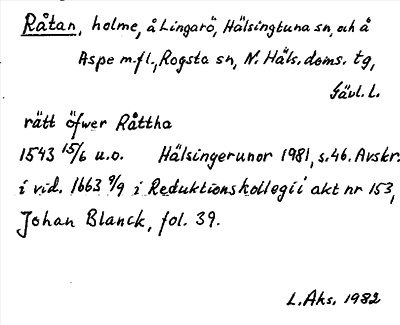 Råtan, holme, å Lingarö, Hälsingtuna sn, och å
Aspe m.fl., Rogsta sn, N. Häls. doms. tg,
Gävl. L.
rätt öfwer Råttha
1543 15/6 u.o. Hälsingerunor 1981, s. 46. Avskr.
i vid. 1663 9/9 i Reduktionskollegii akt nr 153,
Johan Blanck, fol. 39.
L. Aks. 1982